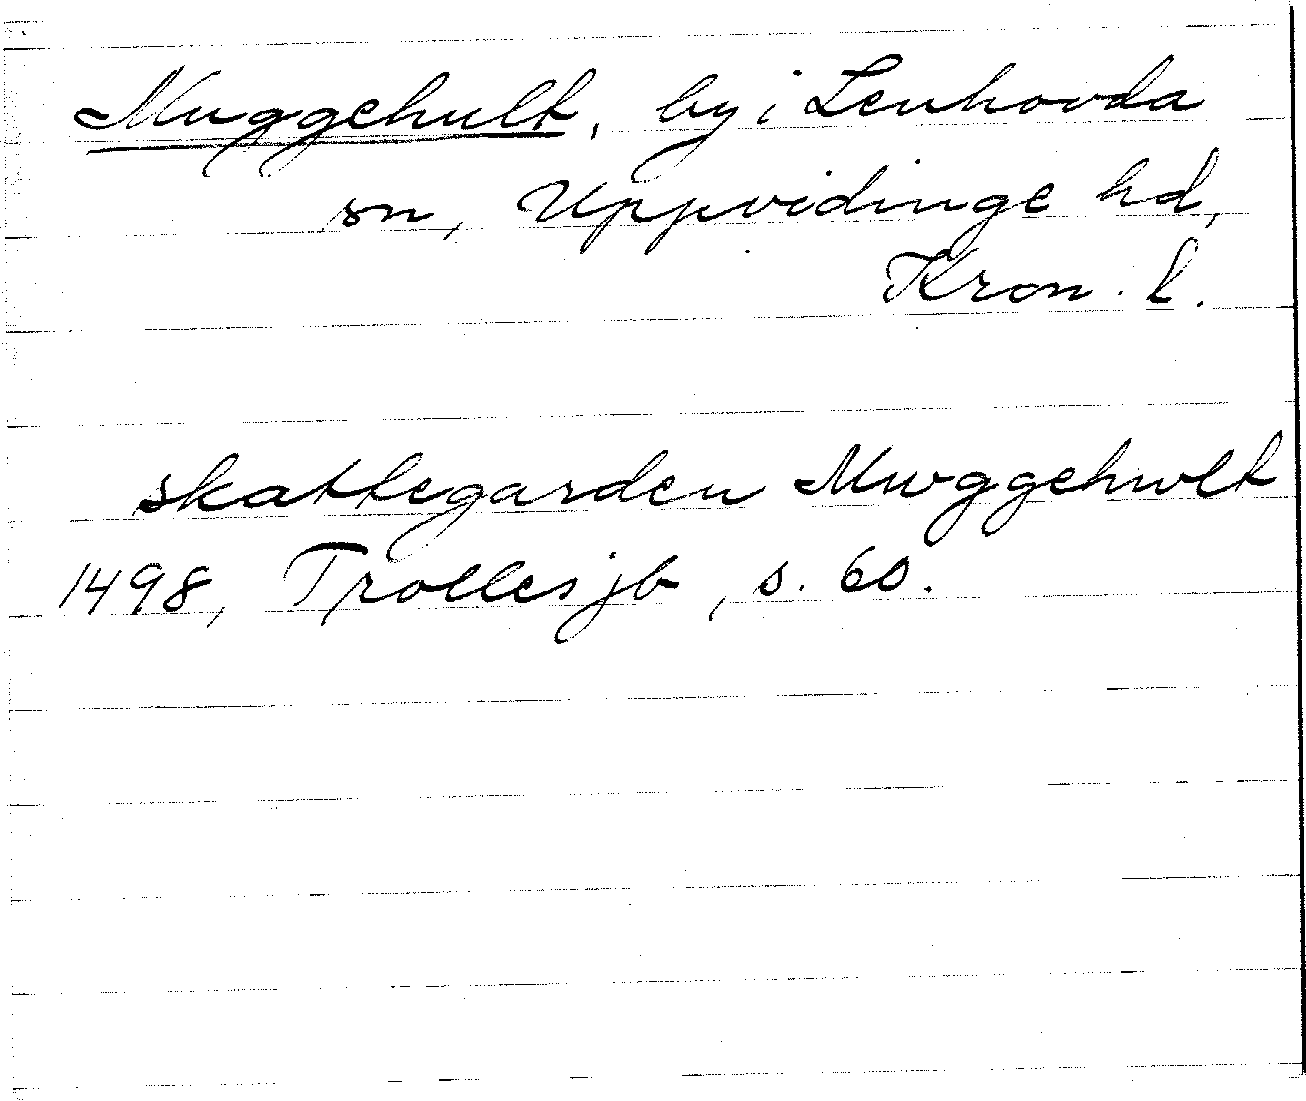 Muggehult, by i Lenhovda
sn, Uppvidinge hd,
Kron. l.
skattegarden Mwggehwlt
1498, Trolles jb, s. 60.